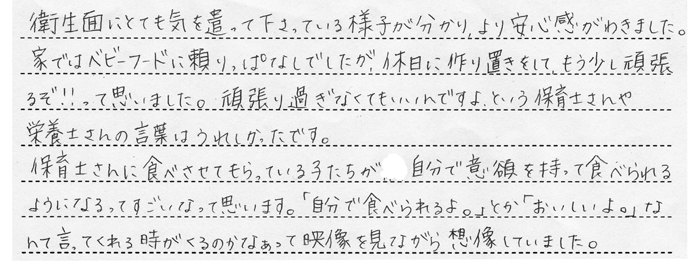 衛生面にとても気を遣って下さっている様子が分かり、より安心感がわきました。
家ではベビーフードに頼りっぱなしでしたが、休日に作り置きをして、もう少し頑張
るぞ!!って思いました。頑張り過ぎなくてもいいんですよ、という保育士さんや
栄養士さんの言葉はうれしかったです。
保育士さんに食べさせてもらっている子たちが、自分で意欲を持って食べられる
ようになるってすごいなって思います。「自分で食べられるよ。」とか「おいしいよ。」な
んて言ってくれる時がくるのかなぁって映像を見ながら想像していました。